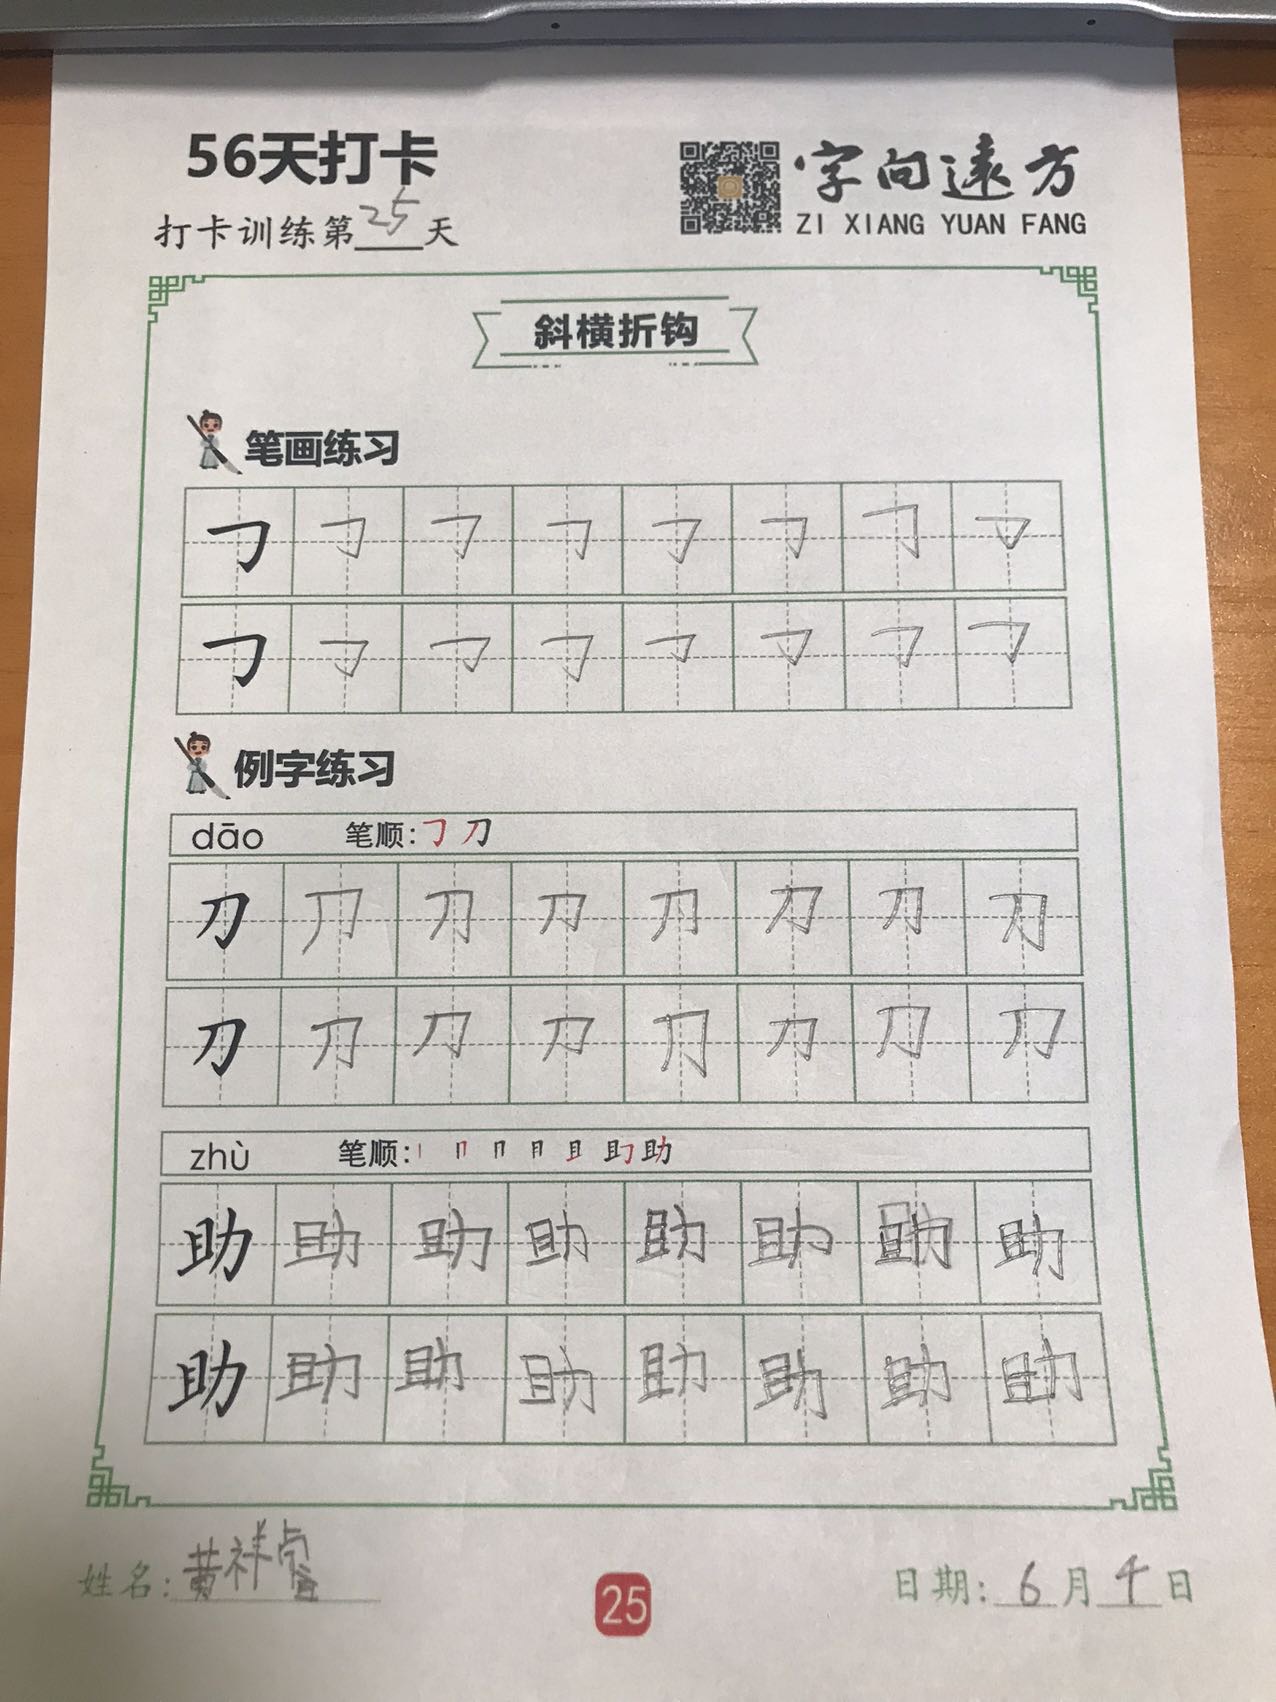 56天打卡
字向遠方
ZI XIANG YUAN FANG
打卡训练第25天
斜横折钩
笔画练习
㇆ ㇆ ㇆ ㇆ ㇆ ㇆ ㇆ ㇆
㇆ ㇆ ㇆ ㇆ ㇆ ㇆ ㇆ ㇆
例字练习
dāo 笔顺:㇆ 刀
刀 刀 刀 刀 刀 刀 刀 刀
刀 刀 刀 刀 刀 刀 刀 刀
zhù 笔顺:丨 冂 冂 月 且 助 助
助 助 助 助 助 助 助 助
助 助 助 助 助 助 助 助
姓名:黄祥睿
25
日期:6月4日